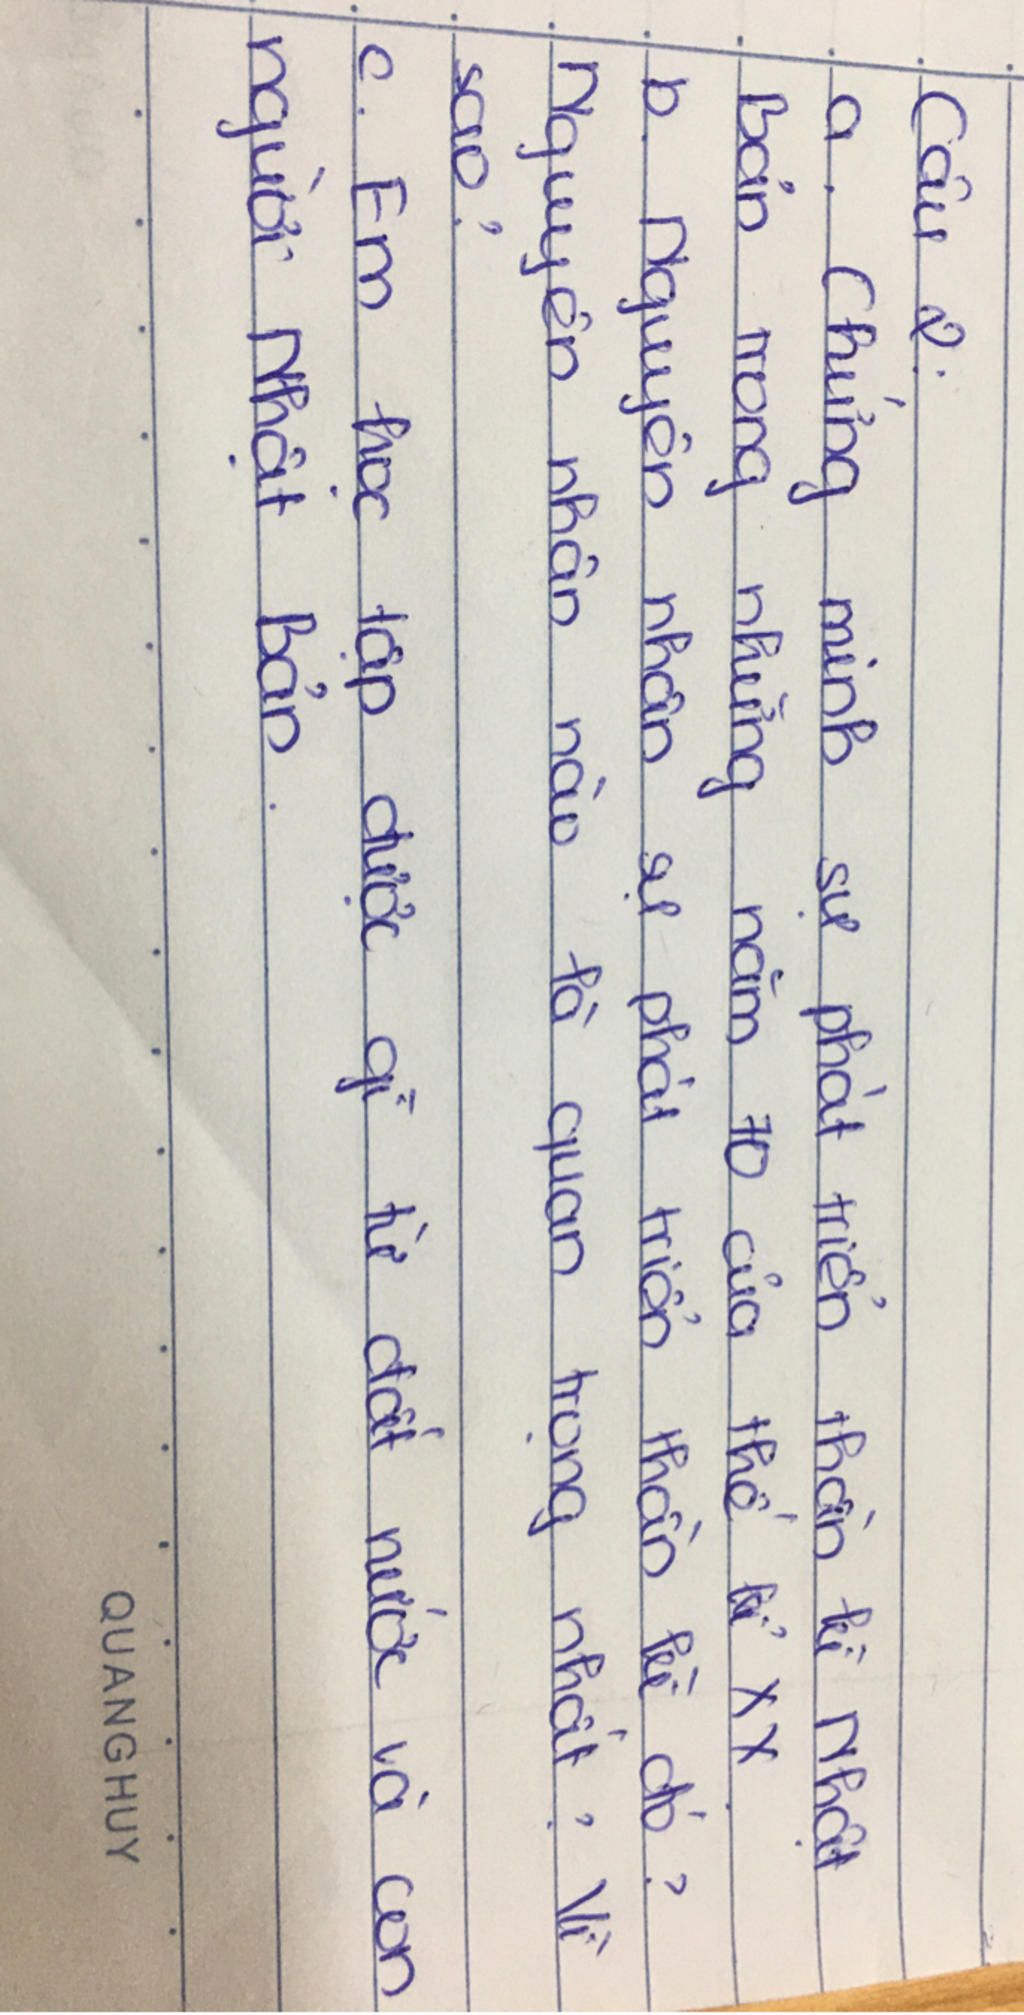 Câu 2:
a. Chứng minh sự phát triển thần kì Nhật
Bản trong những năm 70 của thế kỉ XX.
b. Nguyên nhân sự phát triển thần kì đó?
Nguyên nhân nào là quan trọng nhất? Vì
sao?
c. Em học tập được gì từ đất nước và con
người Nhật Bản.
QUANGHUY